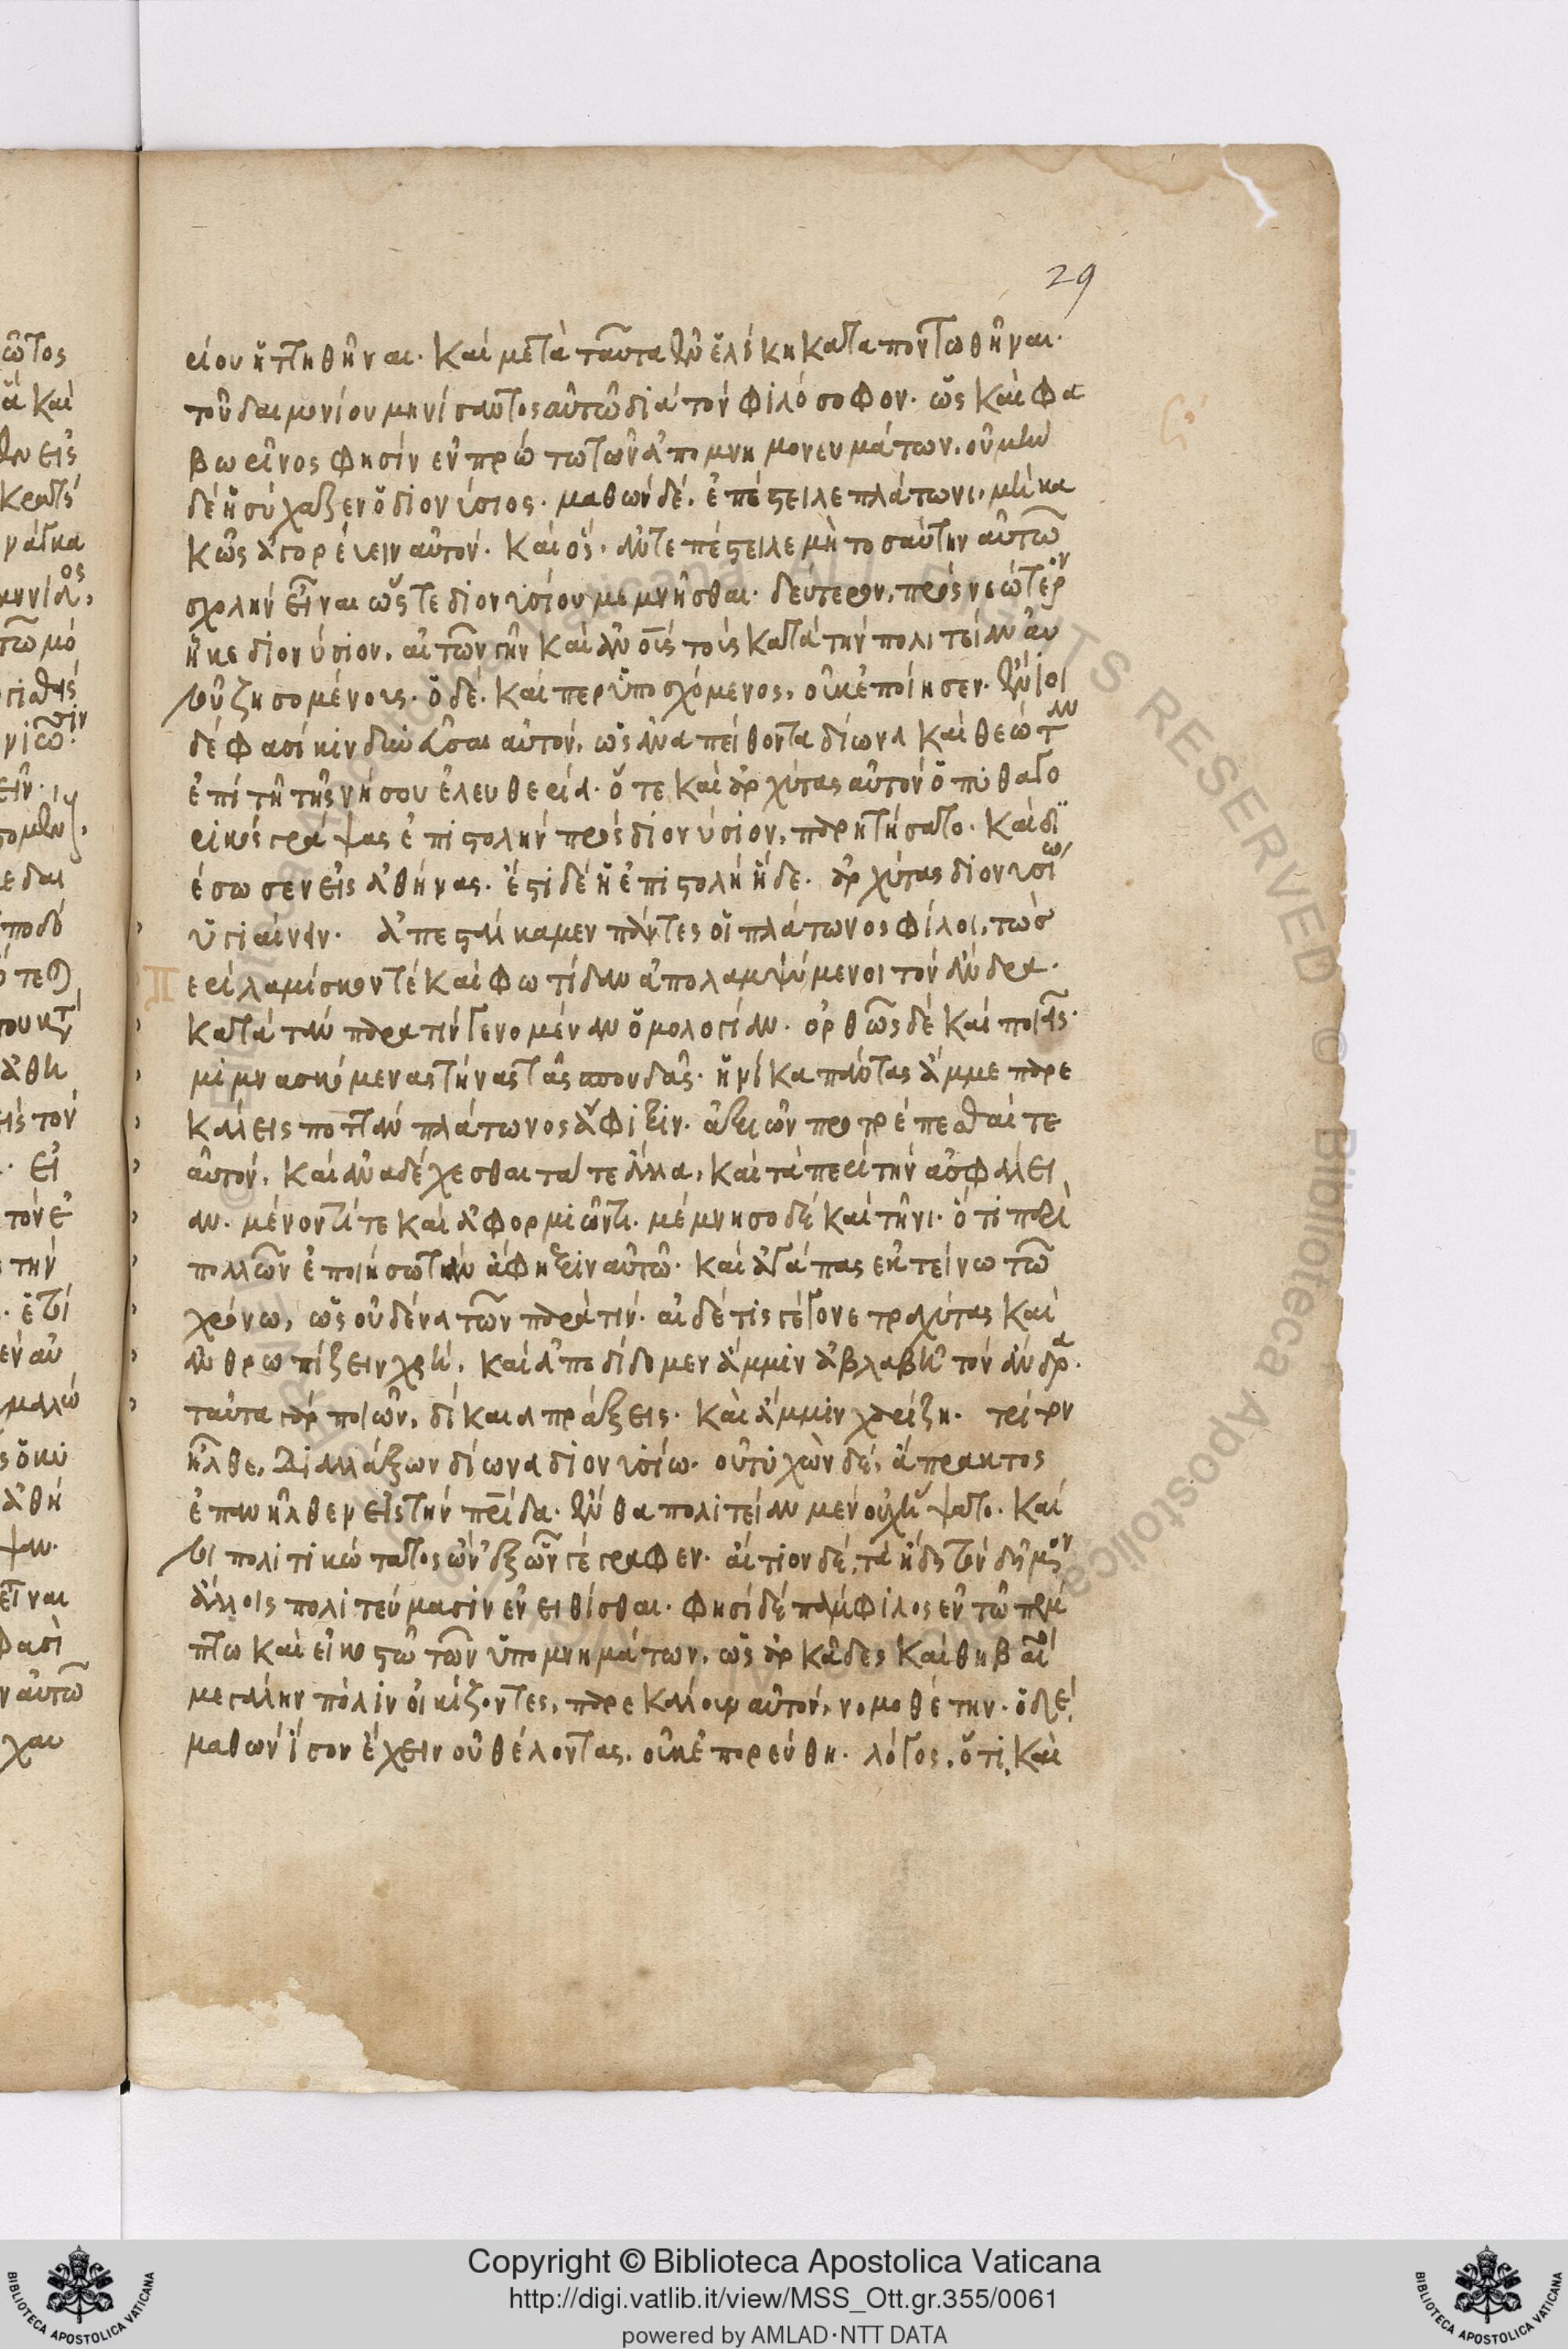 29
ρίου ἡττηθῆναι. καὶ μετὰ ταῦτα ἐν ἑλίκη καταποντωθῆναι.
τοῦ δαιμονίου μηνίσαντος αὐτῶ διὰ τὸν φιλόσοφον. ὡς καὶ φα
βωρῖνος φησὶν ἐν πρώτω τῶν ἀπομνημονευμάτων. οὐ μὴν
δὲ ἡσύχαζεν ὁ διονύσιος. μαθὼν δὲ. ἐπέστειλε πλάτωνι, μὴ κα
κῶς ἀγορεύειν αὐτόν. καὶ ὃς. ἀντεπέστειλε μὴ τοσαύτην αὐτῶ
σχολὴν εἶναι ὥστε διονυσίου μεμνῆσθαι. δεύτερον, πρὸς νεώτερον
ἧκε διονύσιον. αἰτῶν γῆν καὶ ἀνθρώποις τοὺς κατὰ τὴν πολιτείαν αὐ
τοῦ ζησομένους. ὁ δὲ. καίπερ ὑποσχόμενος, οὐκ ἐποίησεν. ἔνιοι
δέ φασι κινδυνεῦσαι αὐτὸν, ὡς ἀναπείθοντα δίωνα καὶ θεώταν
ἐπὶ τῆ τῆς νήσου ἐλευθερία. ὅτε καὶ ἀρχύτας αὐτὸν ὁ πυθαγο
ρικὸς γράψας ἐπιστολὴν πρὸς διονύσιον, παρητήσατο. καὶ δι
έσωσεν εἰς ἀθήνας. ἔστι δὲ ἡ ἐπιστολὴ ἥδε. ἀρχύτας διονυσίω
ὑγιαίνειν. ἀπεστάλκαμεν πάντες οἱ πλάτωνος φίλοι, τὼς
π
ερὶ λαμίσκον τὲ καὶ φωτίδαν ἀπολαμψύμενοι τὸν ἄνδρα.
κατὰ τὰν παρατὶν γενομέναν ὁμολογίαν. ὀρθῶς δὲ καὶ ποιῇς.
μιμνασκόμενας τήνας τᾶς σπουδᾶς. ἡνίκα πάντας ἄμμε παρε
κάλεις ποττὰν πλάτωνος ἄφιξιν. ἀξιῶν προτρέπεσθαί τε
αὐτὸν, καὶ ἀναδέχεσθαι τά τε ἄλλα, καὶ τὰ περὶ τὴν ἀσφάλει
αν. μένοντί τε καὶ ἀφορμιῶντι. μέμνησο δὲ καὶ τῆνι. ὅτι περὶ
πολλῶν ἐποιήσω τὴν ἄφηξιν αὐτῶ. καὶ ἀγάπας ἐκτείνω τῶ
χρόνω, ὡς οὐδένα τῶν παρὰ τίν. αἰ δέ τις γέγονε τραχύτας καὶ
ἀνθρωπίζειν χρὴ, καὶ ἀποδίδομεν ἄμμιν ἀβλαβῆ τὸν ἄνδρα.
ταῦτα γὰρ ποιῶν, δίκαια πράξεις. καὶ ἄμμιν χαρίζη. τρίτον
ἦλθε, διαλλάξων δίωνα διονυσίω. οὐ τυχὼν δὲ, ἄπρακτος
ἐπανῆλθεν εἰς τὴν πατρίδα. ἔνθα πολιτείαν μὲν οὐχ ἥψατο. καί
τοι πολιτικώτατος ὢν ἐξ ὧν γέγραφεν. αἴτιον δὲ, τὸ ἤδη τὸν δῆμον
ἄλλοις πολιτεύμασιν ἐνειθίσθαι. φησὶ δὲ πάμφιλος ἐν τῶ πέμ
πτω καὶ εἰκοστῶ τῶν ὑπομνημάτων. ὡς ἀρκάδες καὶ θηβαῖοι
μεγάλην πόλιν οἰκίζοντες, παρεκάλουν αὐτὸν, νομοθέτην. ὁ δὲ
μαθὼν ἴσον ἔχειν οὐ θέλοντας. οὐκ ἐπορεύθη. λόγος, ὅτι καὶ
Copyright © Biblioteca Apostolica Vaticana
http://digi.vatlib.it/view/MSS_Ott.gr.355/0061
powered by AMLAD·NTT DATA